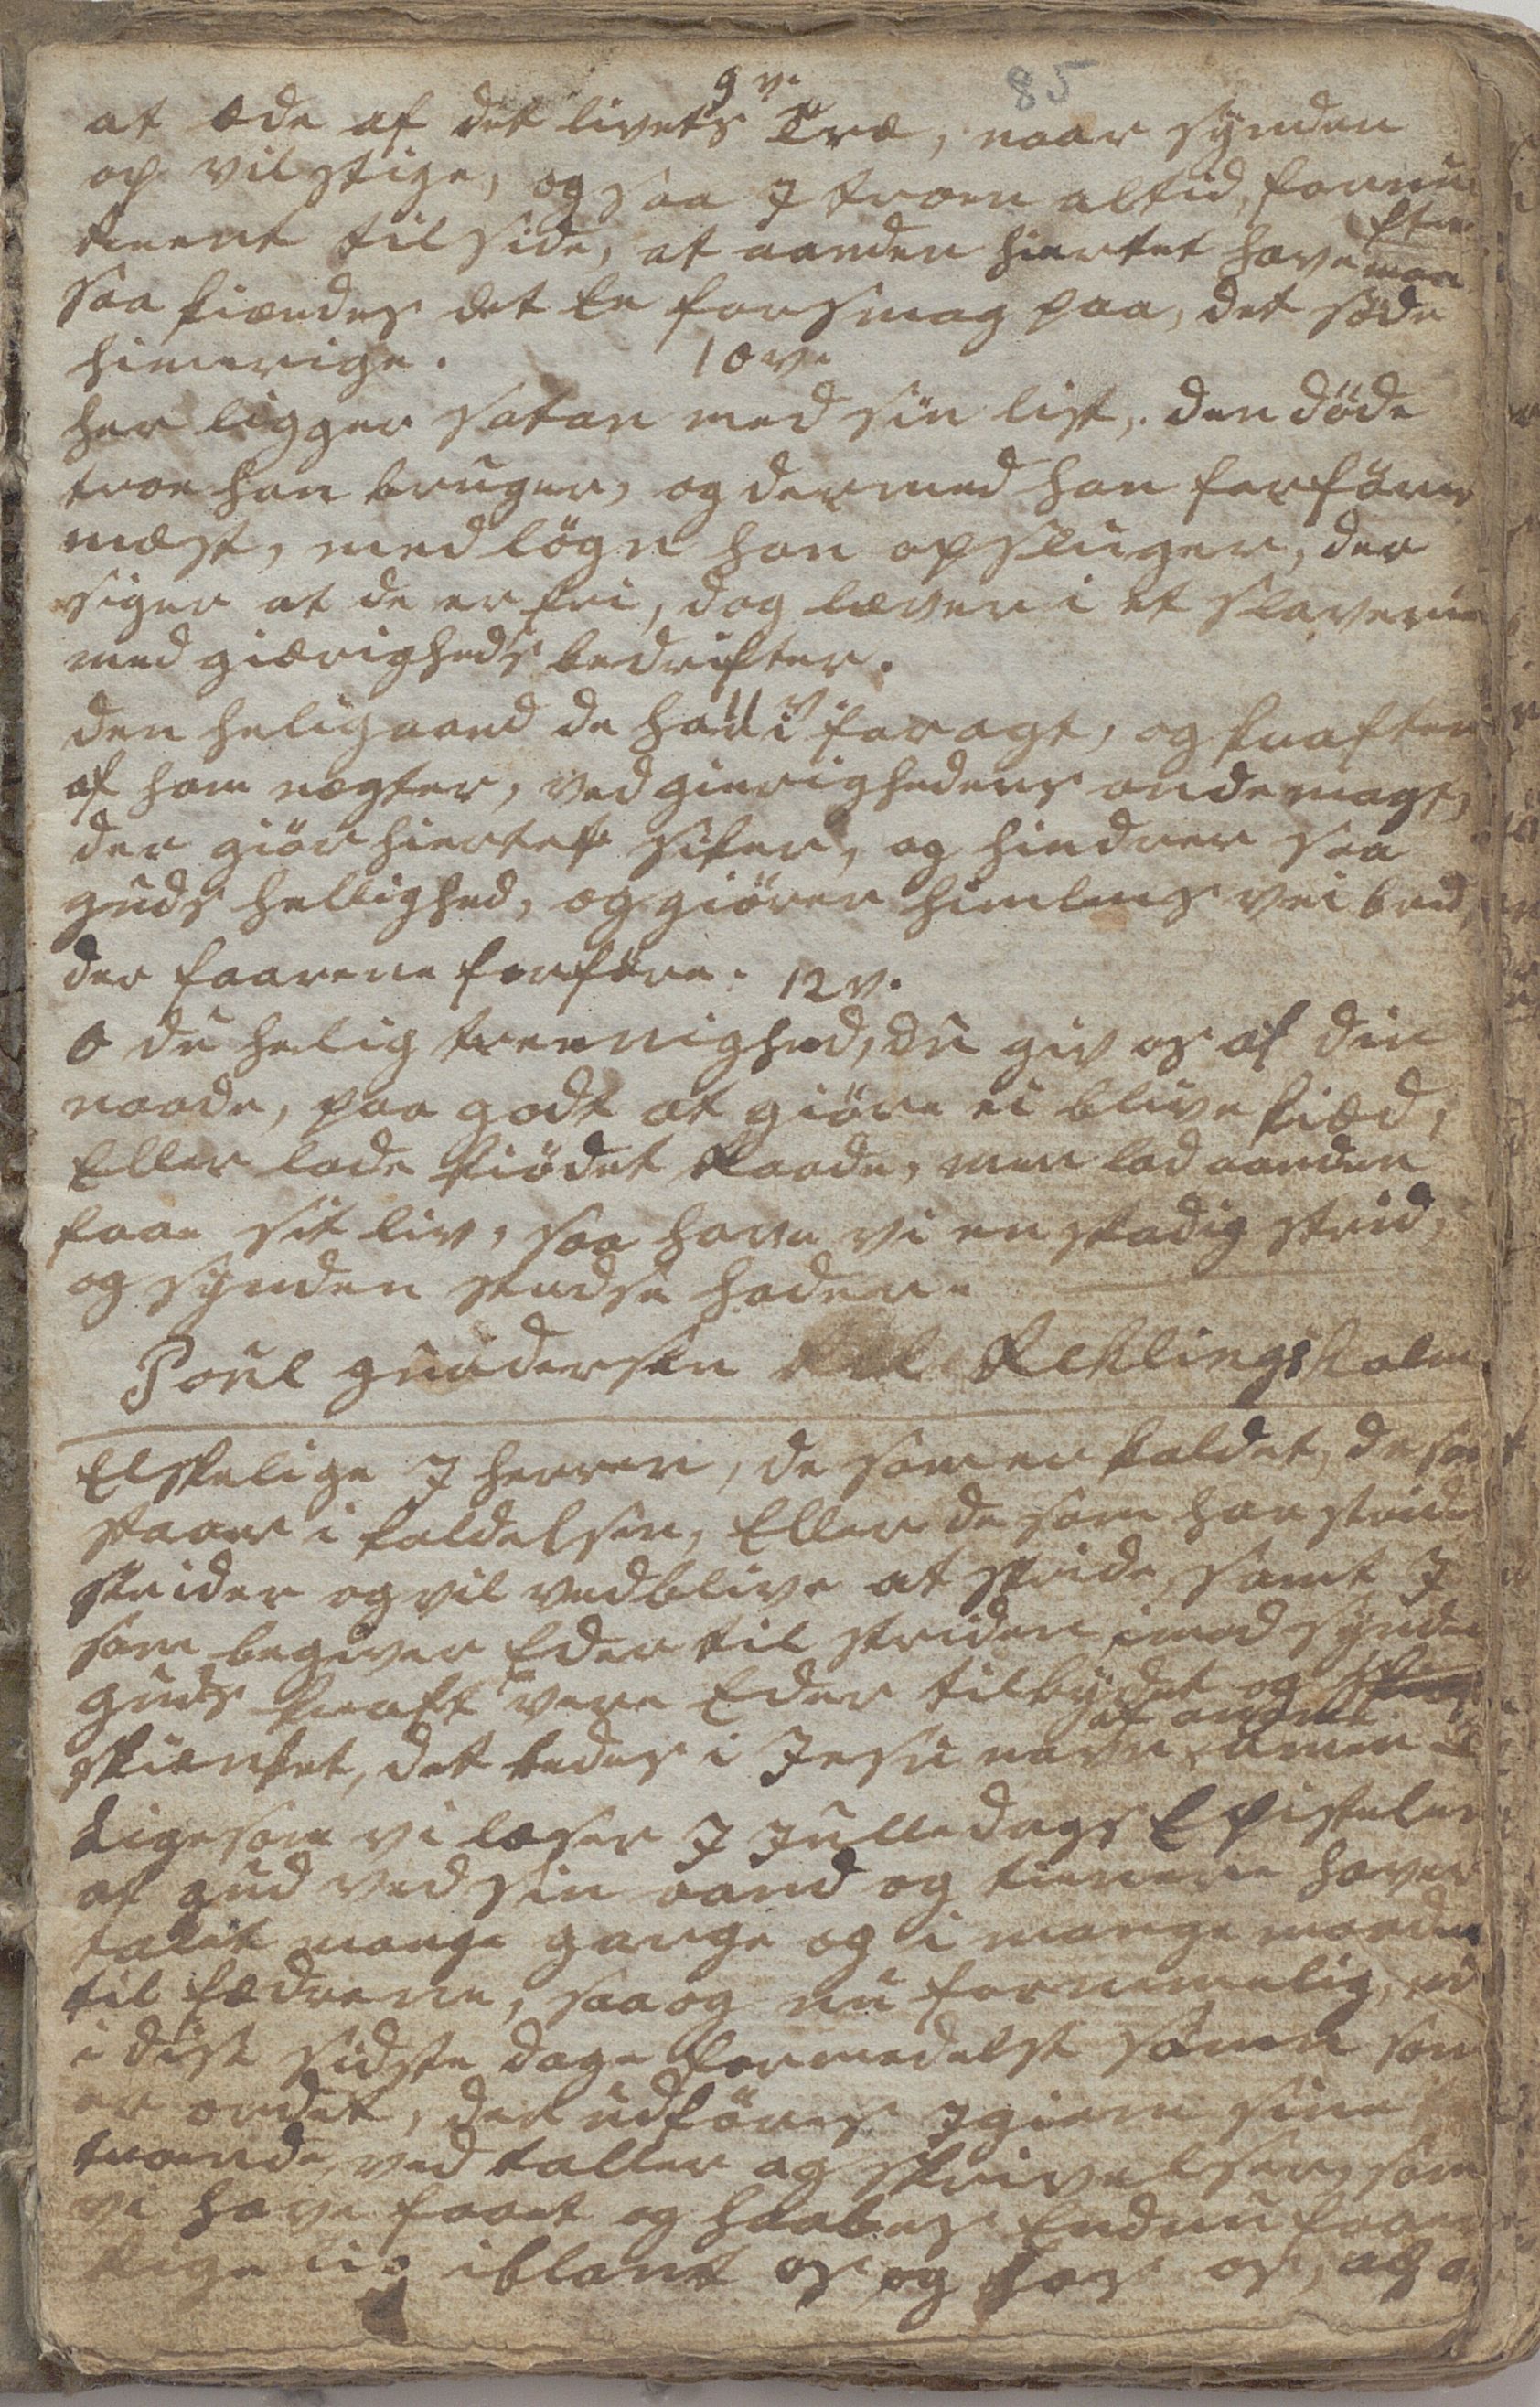 9 v.
85
at æde af det livets Træ, naar synden
op vil stige, og saa J troen altid, fornui
ten
tenent til side, at aanden hiertet have maa
saa kiændes det En forsmag paa, det søde
himerige.
10 v.
her ligger Satan med sin list, den døde
troe han bruger, og dermed han forfører
mæst, med løgn han opsluger, der
siger at de er fri, dog læver i et slaverie
med giærigheds bedrifter.
11 v.
den helig aand de har i foragt, og kraften
af ham nægter, ved gierighedens onde magt,
der giør hiertet siker, og hindrer saa
guds hellighed, og giører himlens vei bred,
der faarene forføre.
12 v.
O du helig treenighed, du giv os af din
naade, paa godt at giøre ei blive kied,
Eller lade kiødet Raade, men lad aanden
faae sit liv, saa have vi en stadig strid,
og synden stedse hader.
Poul gundersen Reklingsholm
Elskelige J herren, de som er kaldet, de som
staaer i kaldelsen, Eller de som har stridt
strider og vil vedblive at stride, samt J
som begiver Eder til striden imod synden
guds kraft vere Eder tilbydet og
af
skienket, det bedes i Jesu navn, amen
Ligesom vi læser J Julledags Epistelen
at gud ved sin aand og tienere haver
talet mange gange og i mange maader
til fædrene, saa og nu fornemelig, vi
i dise sidste dage formedelst sønnen som
er ordet, der udføres Jgiem sine
troende, ved taller og skrivelser, som
vi have faaet og haabes Endnu faar
Rigelig iblant os og hos os, at